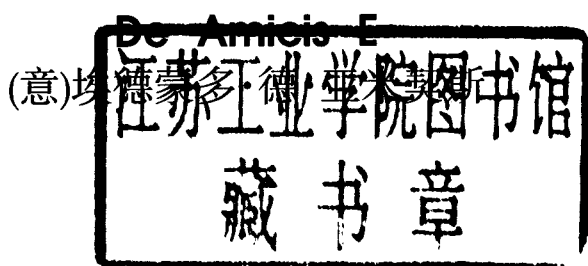 De Amicis E
(意)埃德蒙多·德·亚米契斯
江苏工业学院图书馆
藏书章